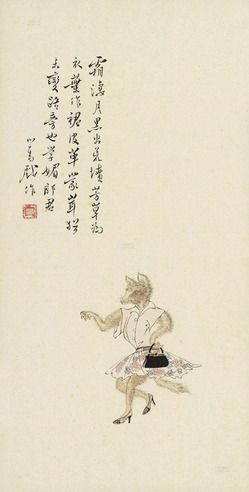 霜濃月黑出荒墳芳草為
衣葉作裙皮革蒙茸猶
未變路旁也學媚郎君
心畬戲作